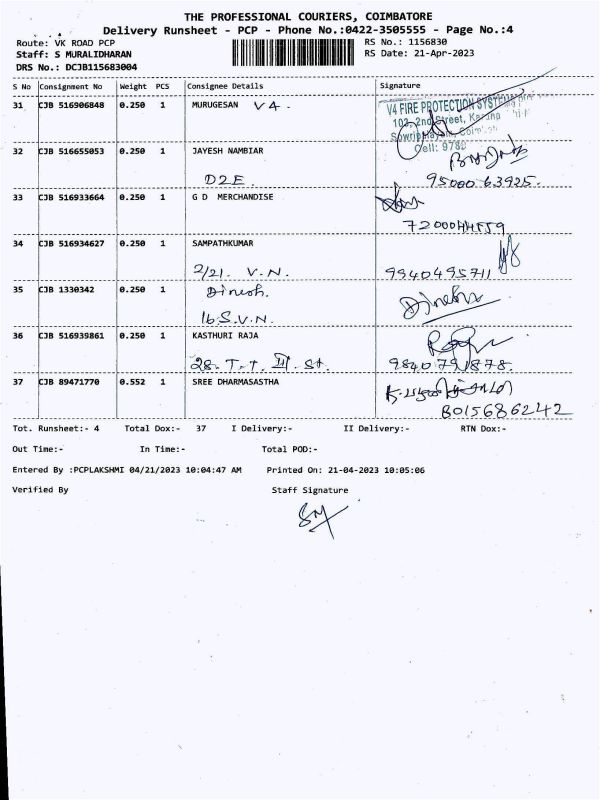 THE PROFESSIONAL COURIERS, COIMBATORE
Delivery Runsheet - PCP - Phone No.:0422-3505555 - Page No.:4
Route: VK ROAD PCP RS No.: 1156830
Staff: S MURALIDHARAN RS Date: 21-Apr-2023
DRS No.: DCJB115683004
S No Consignment No Weight PCS Consignee Details Signature
31 CJB 516906848 0.250 1 MURUGESAN V4. V4 FIRE PROTECTION SYSTEM
102, 2nd Street,
Cell: 9788
32 CJB 516655053 0.250 1 JAYESH NAMBIAR
D2E. 95000 63925.
33 CJB 516933664 0.250 1 G D MERCHANDISE
7200044559
34 CJB 516934627 0.250 1 SAMPATHKUMAR
2/21. V.N. 9940495711
35 CJB 1330342 0.250 1 Dinesh. Dinesh
16.S.V.N.
36 CJB 516939861 0.250 1 KASTHURI RAJA
28. T.T. III St. 9840791878.
37 CJB 89471770 0.552 1 SREE DHARMASASTHA
8015686242
Tot. Runsheet:- 4 Total Dox:- 37 I Delivery:- II Delivery:- RTN Dox:-
Out Time:- In Time:- Total POD:-
Entered By :PCPLAKSHMI 04/21/2023 10:04:47 AM Printed On: 21-04-2023 10:05:06
Verified By Staff Signature